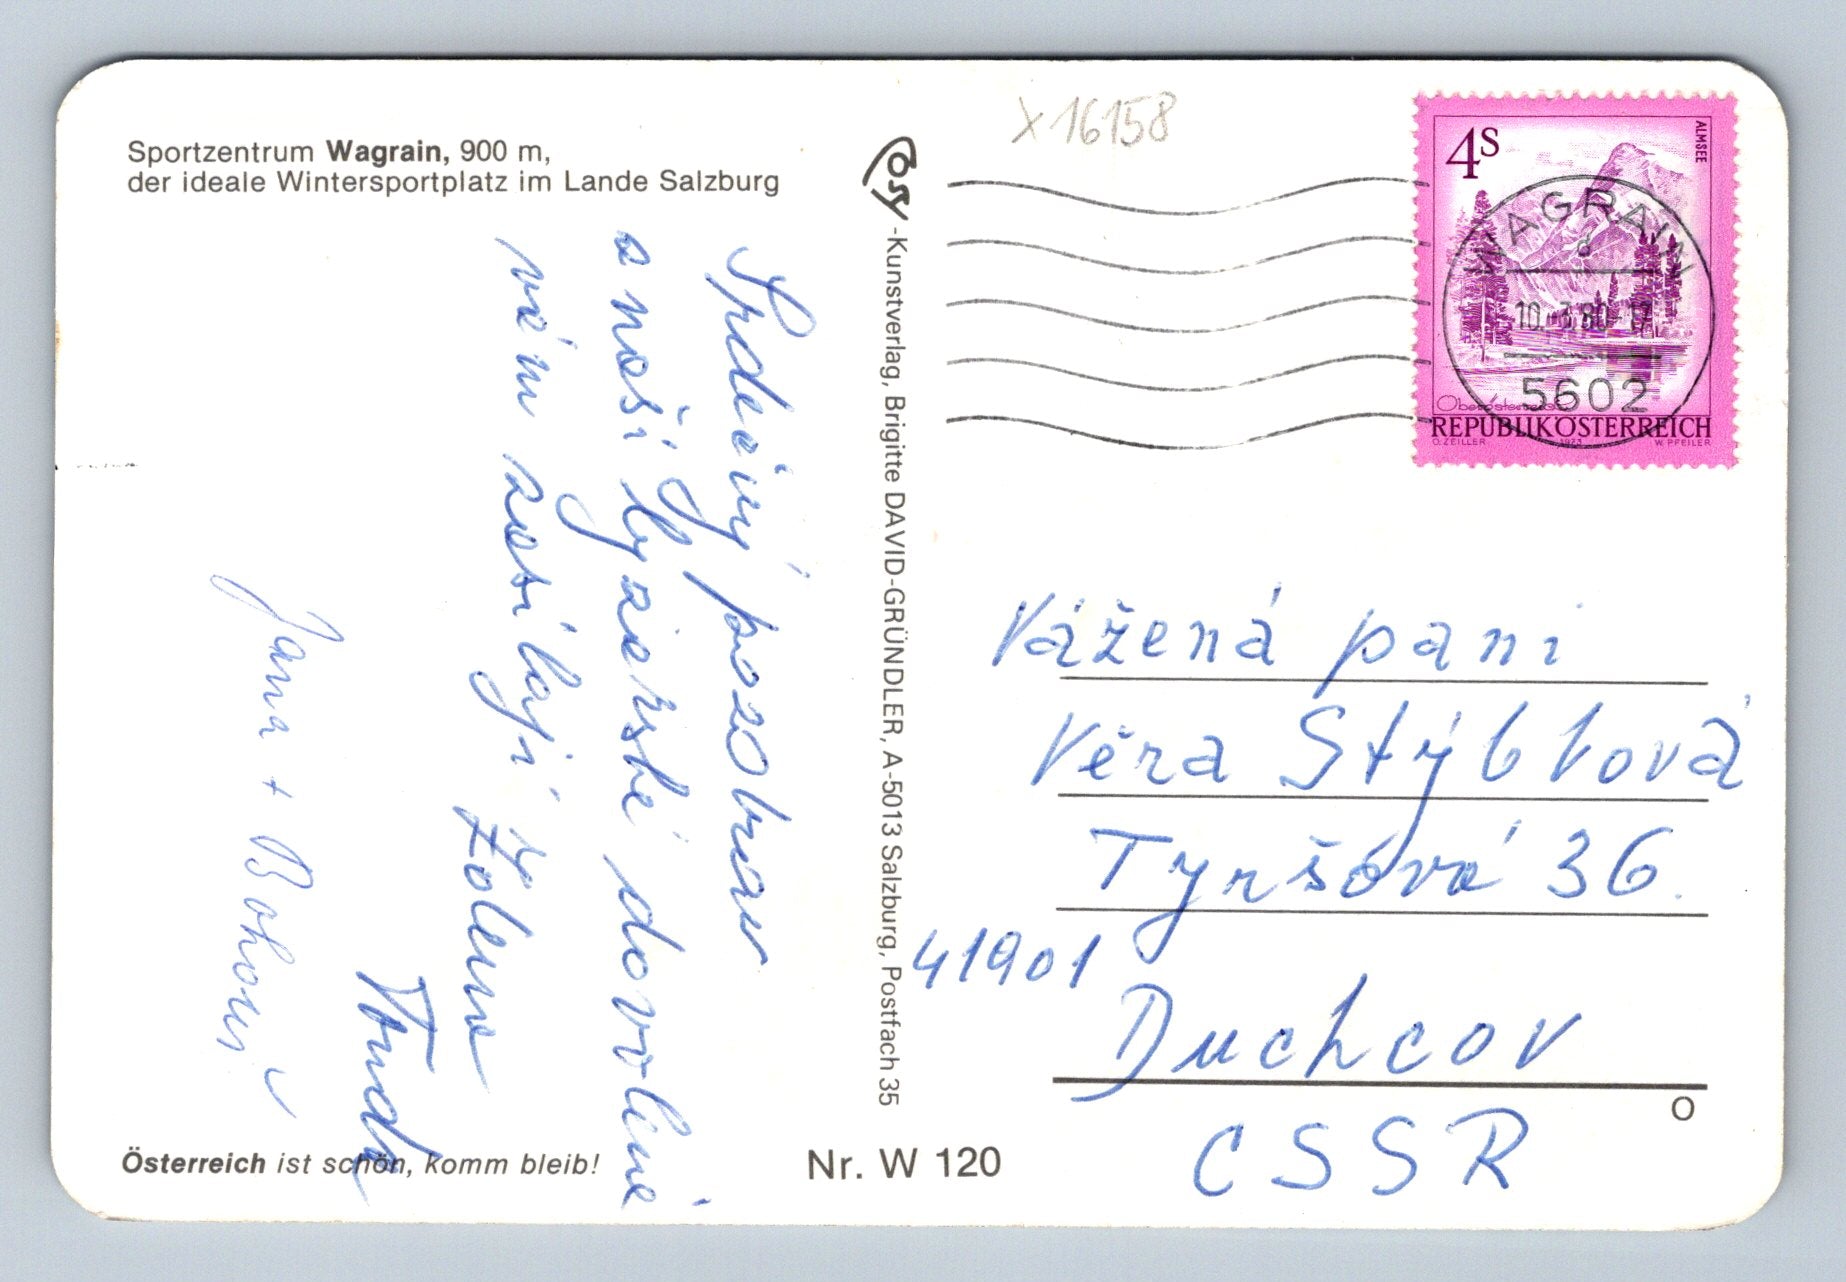 Sportzentrum Wagrain, 900 m,
der ideale Wintersportplatz im Lande Salzburg
Srdečný pozdrav
z naší lyžařské dovolené
vám zasílají
Jana + Bohouš
Österreich ist schön, komm bleib!
Cosy-Kunstverlag, Brigitte DAVID-GRÜNDLER, A-5013 Salzburg, Postfach 35
Nr. W 120
X 16158
4S
ALMSEE
WAGRAIN
10.-3.80-17
5602
Oberösterreich
REPUBLIK ÖSTERREICH
O. ZEILLER 1973 W. PFEILER
Vážená pani
Věra Stýblová
Tyršová 36.
41901
Duchcov
CSSR